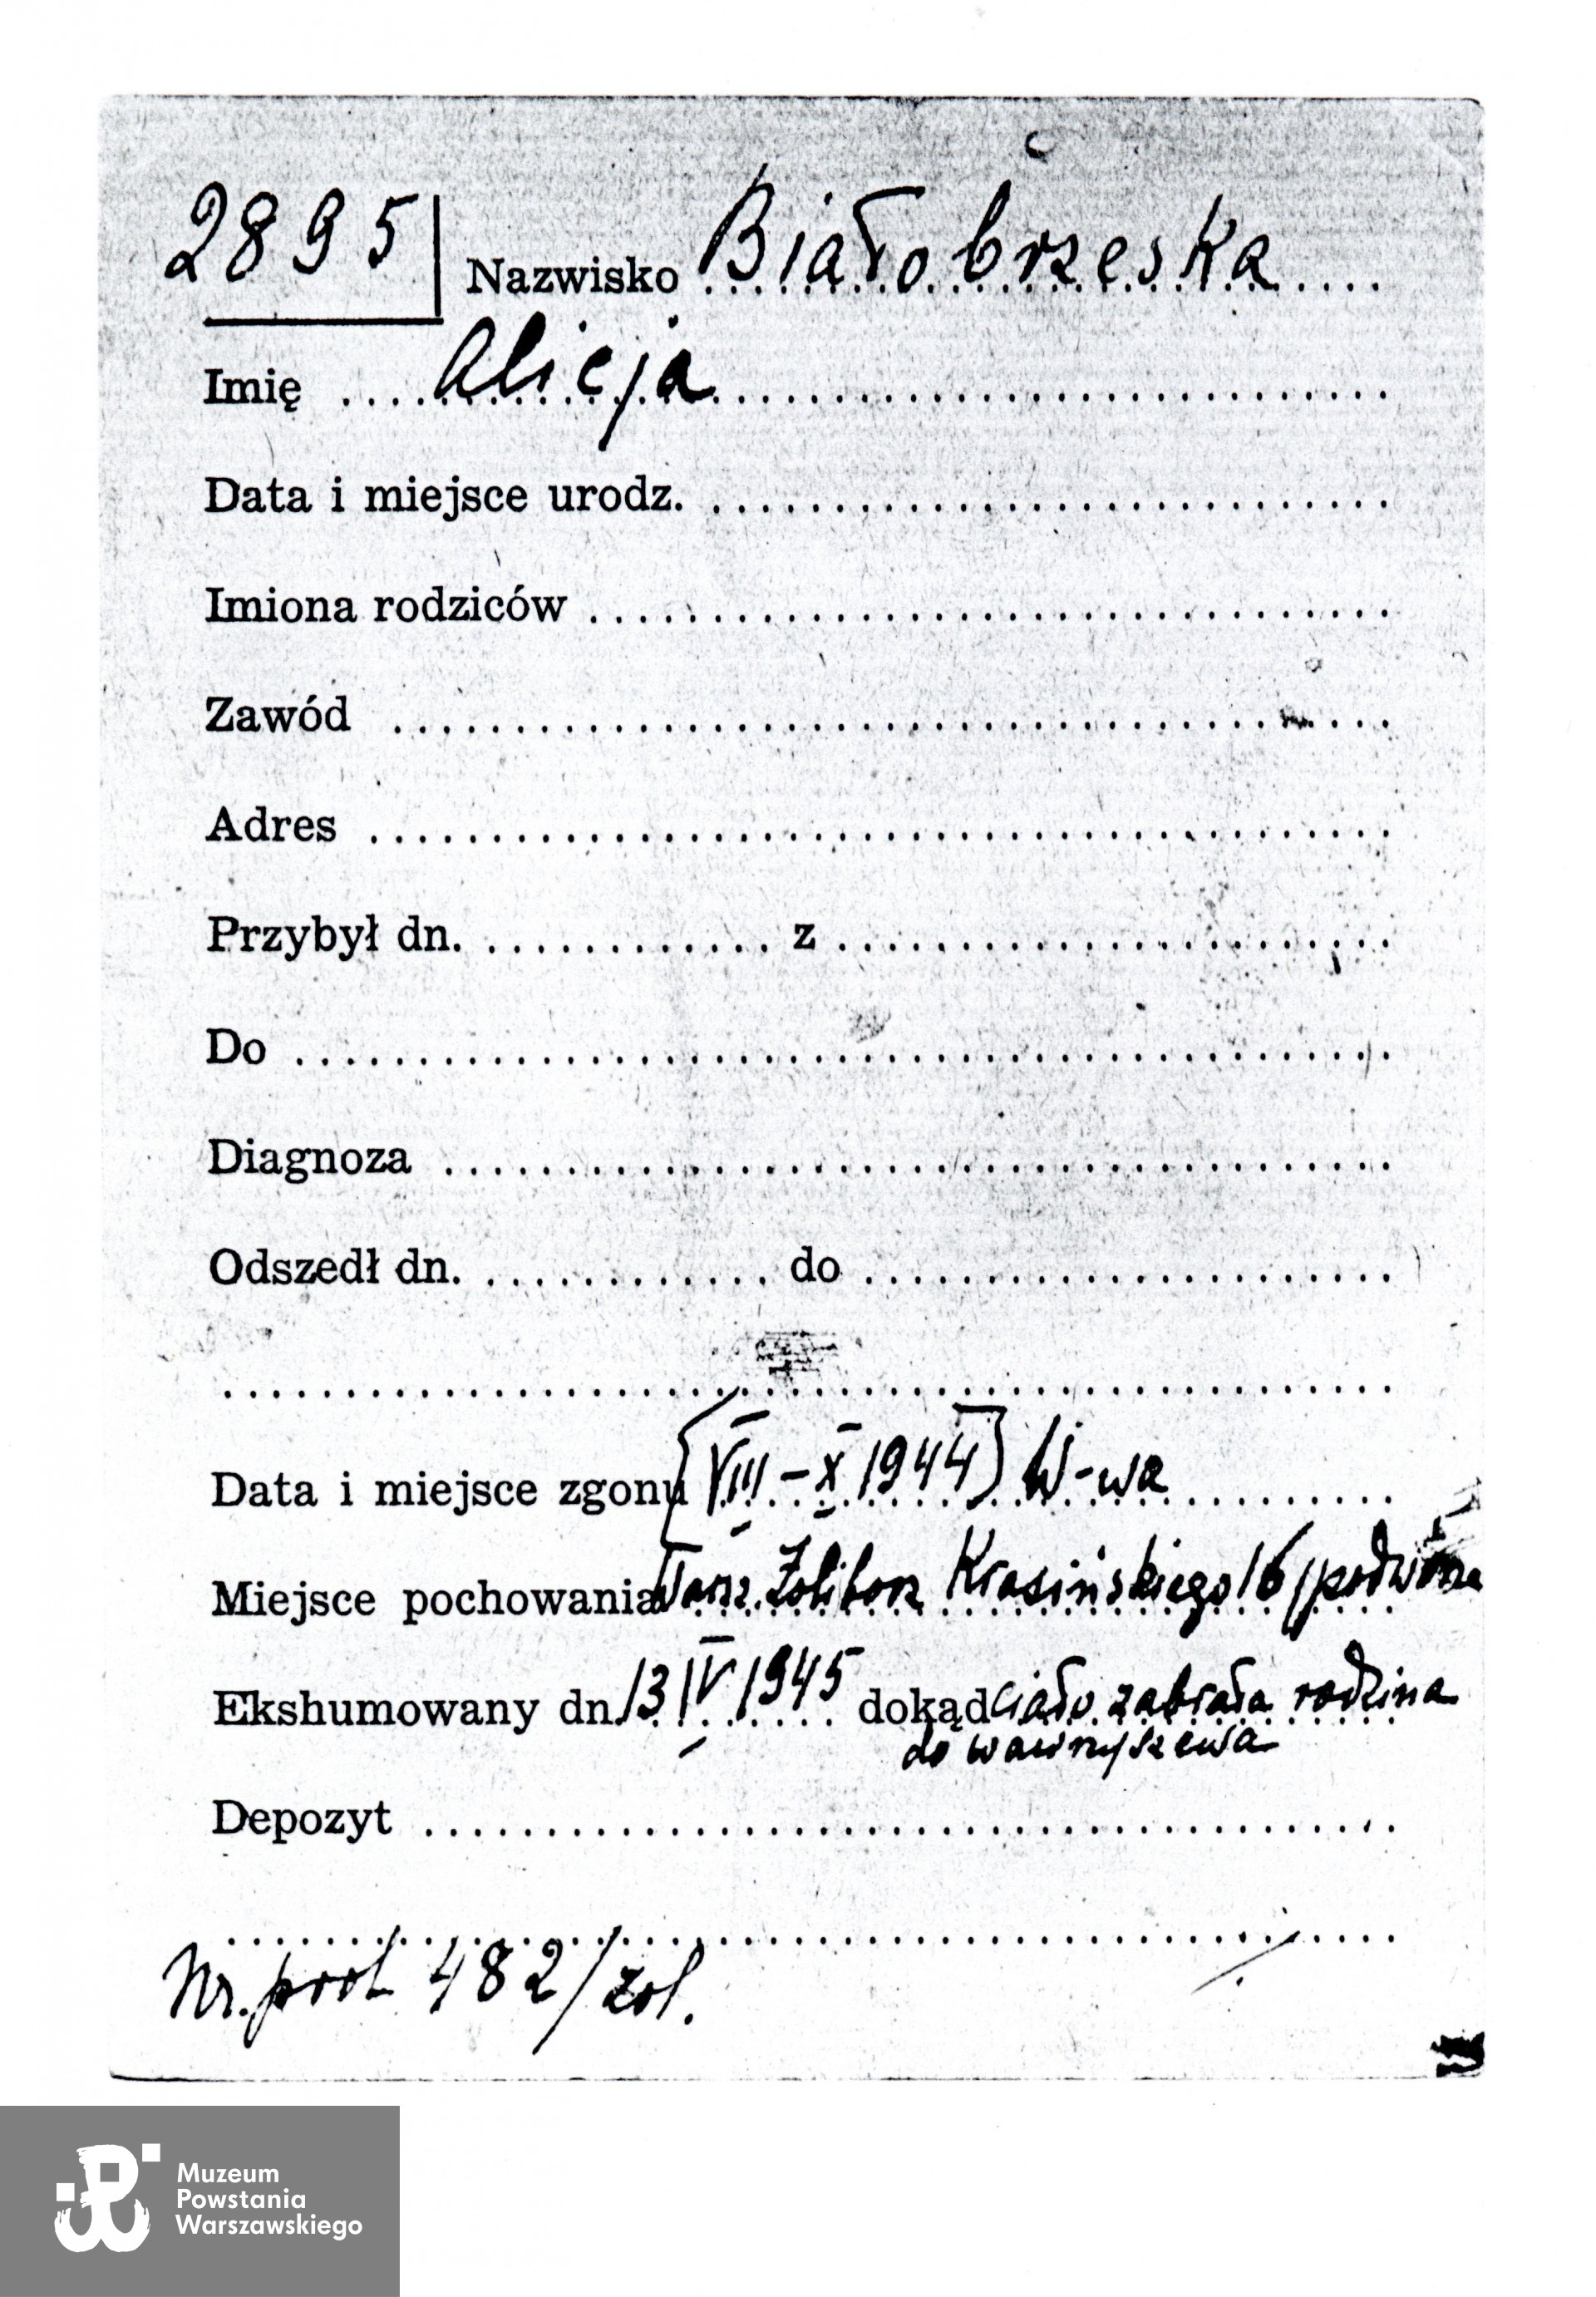 2895 Nazwisko Białobrzeska
Imię Alicja
Data i miejsce urodz.
Imiona rodziców
Zawód
Adres
Przybył dn. z
Do
Diagnoza
Odszedł dn. do
Data i miejsce zgonu [VIII – X 1944] W-wa
Miejsce pochowania Warsz. Żoliborz Krasińskiego 16 /podwórze
Ekshumowany dn. 13 IV 1945 dokąd ciało zabrała rodzina
do
Depozyt
Nr. prot 482/żol.
Muzeum
Powstania
Warszawskiego